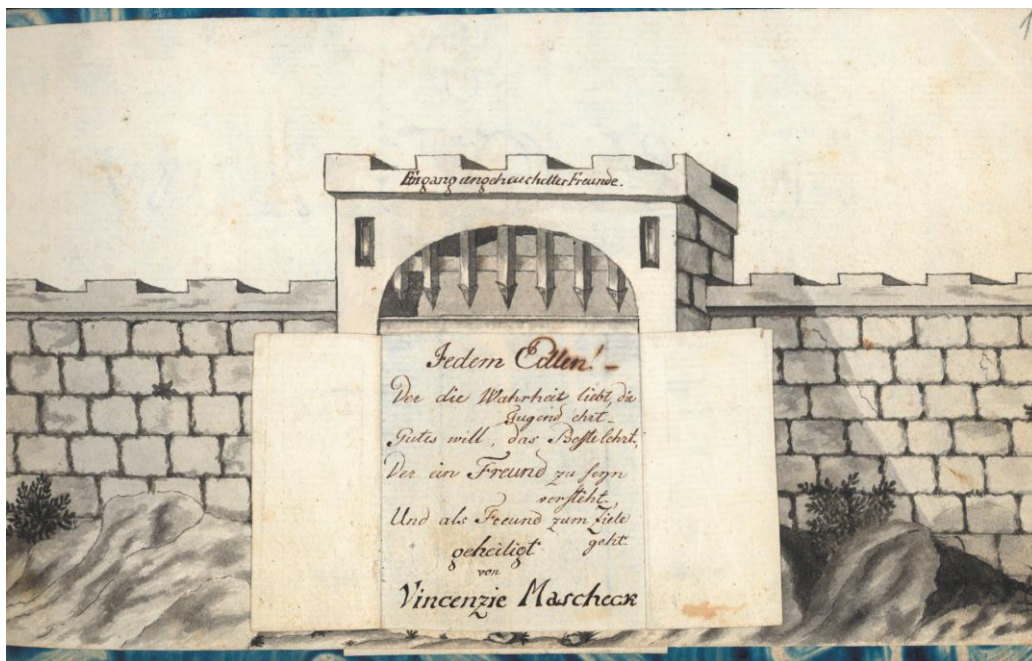 1
Eingang ungeheuchelter Freunde.
Jedem Edlen! –
Der die Wahrheit liebt, die
Tugend ehrt.
Gutes will, das Beste lehrt,
Der ein Freund zu seyn
versteht,
Und als Freund zum Ziele
geht.
geheiligt
von
Vincenzie Mascheck